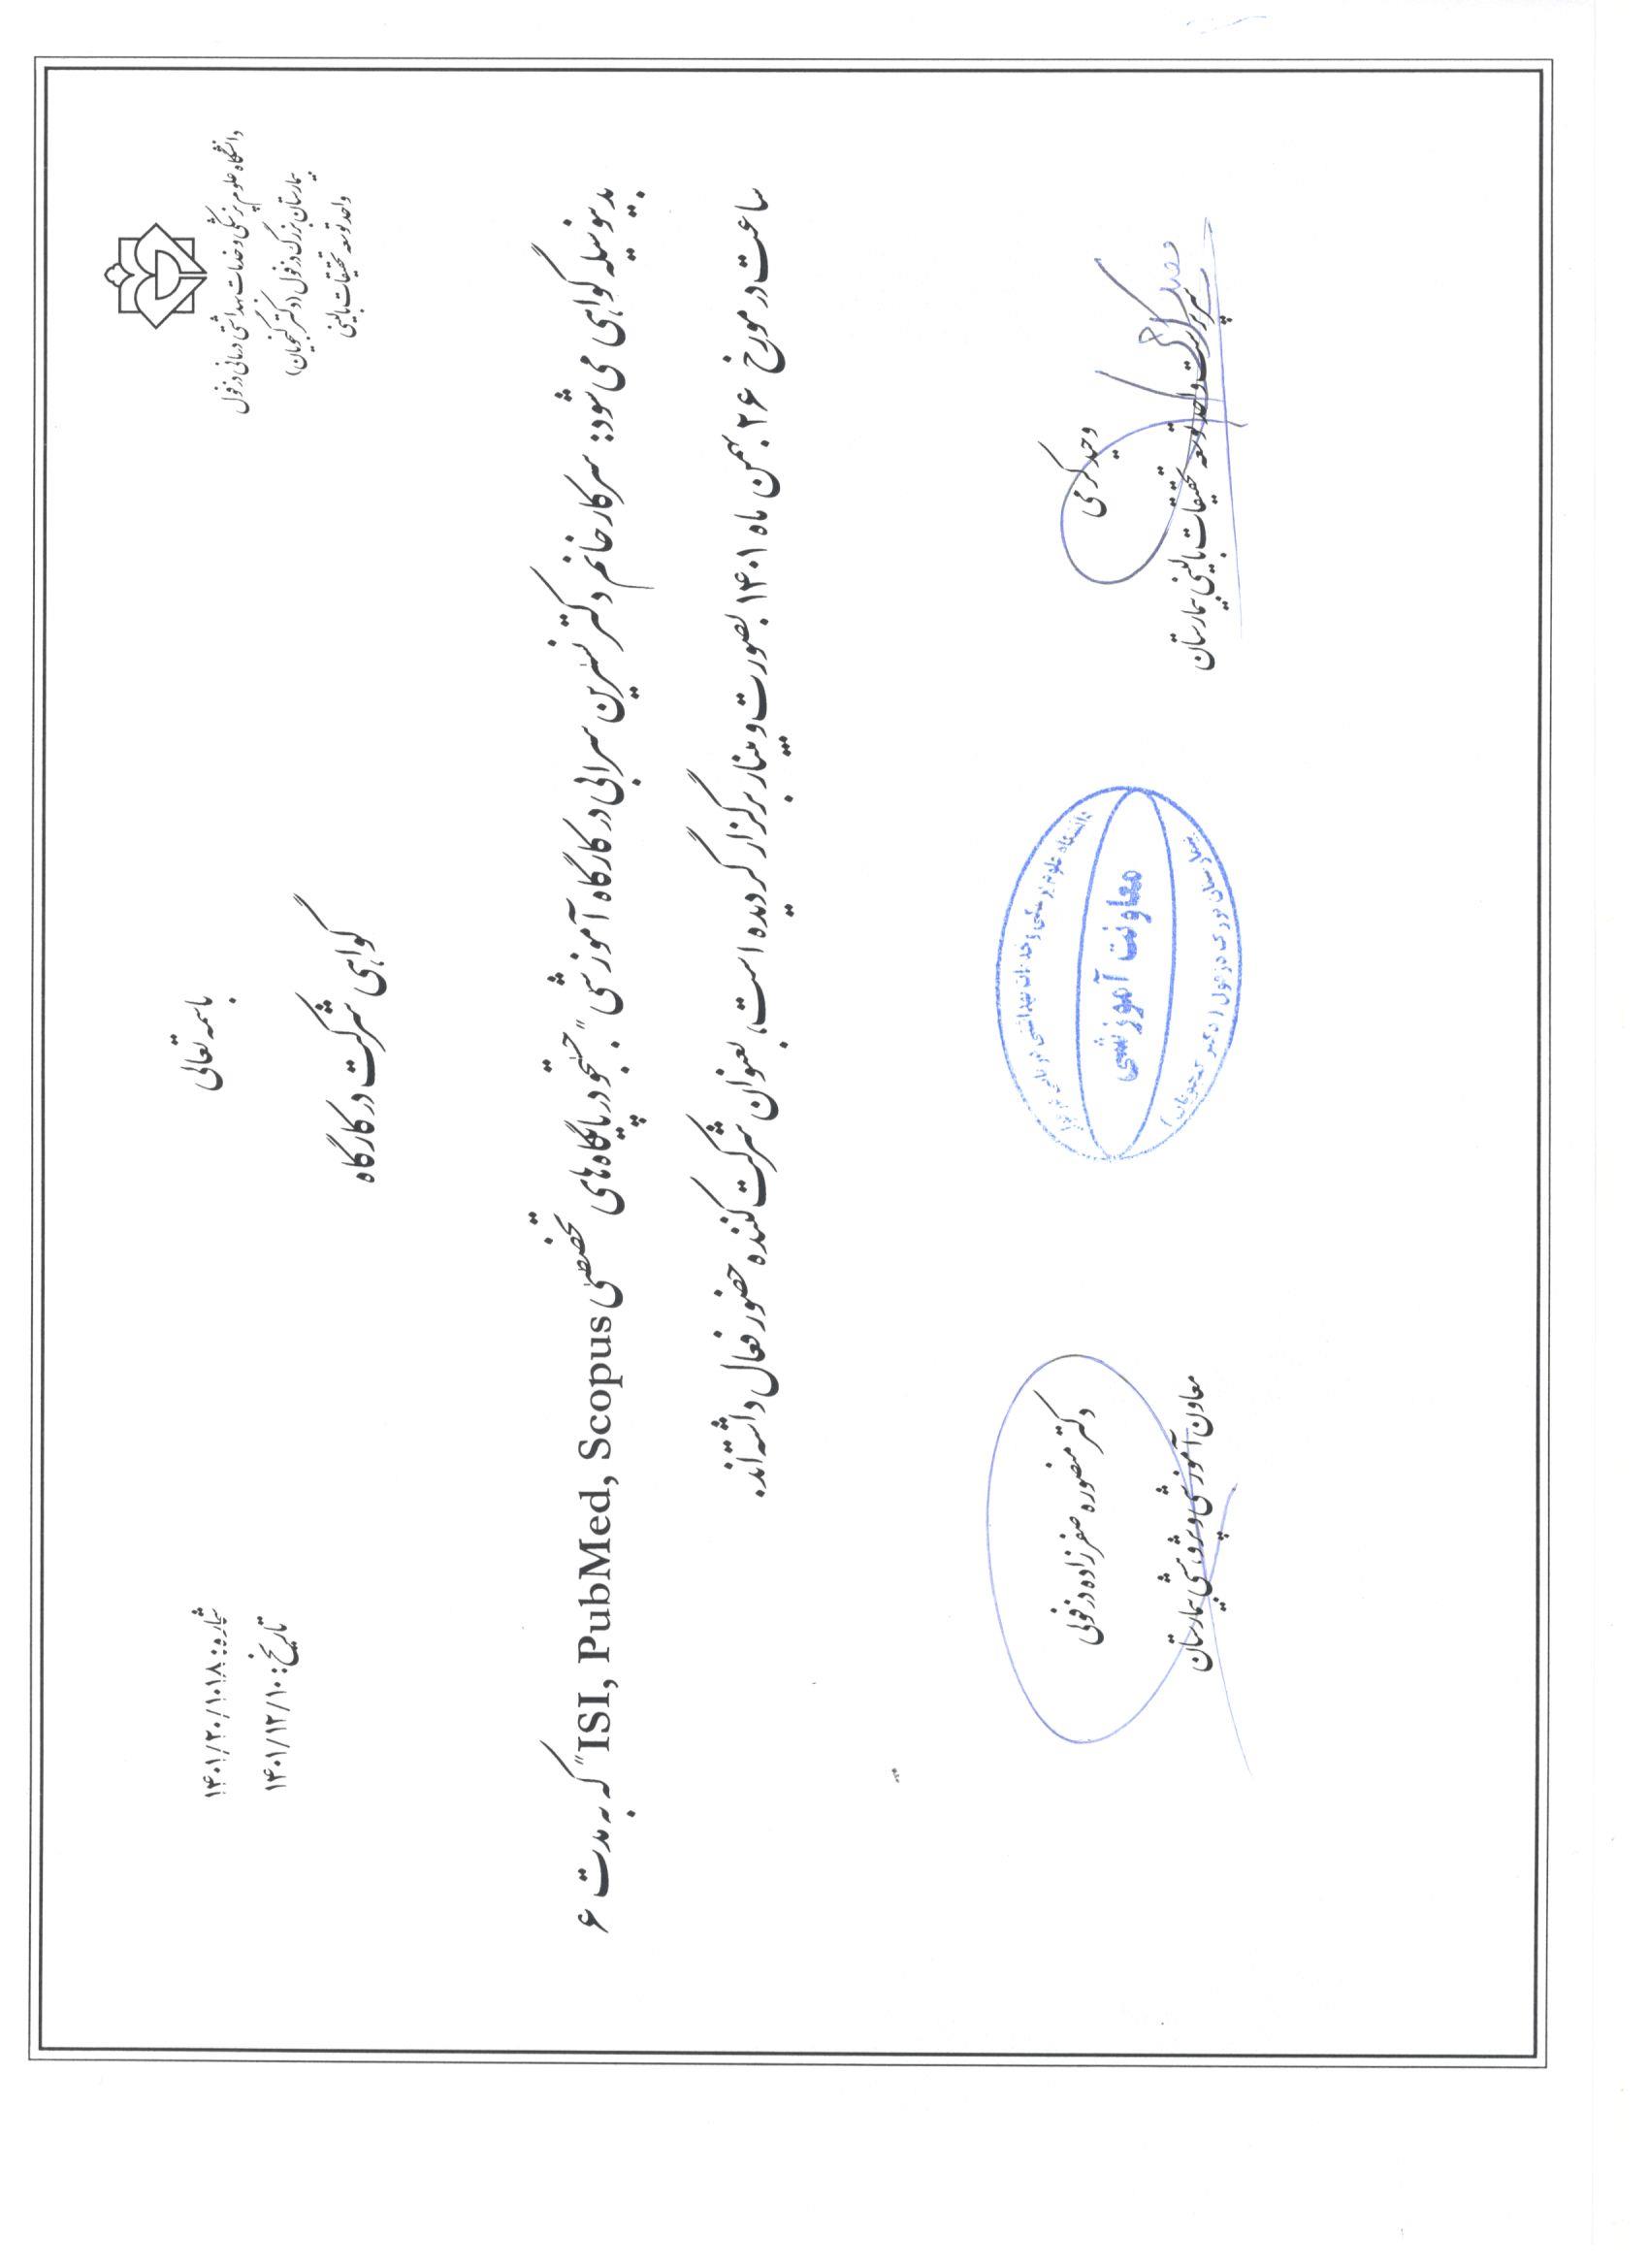 باسمه تعالی
دانشگاه علوم پزشکی و خدمات بهداشتی درمانی دزفول
بیمارستان بزرگ دزفول (دکتر گنجویان)
واحد توسعه تحقیقات بالینی
شماره: ۱۴۰۱/۲۰/۱۰۱۸
تاریخ: ۱۴۰۱/۱۲/۱۰
گواهی شرکت در کارگاه
بدینوسیله گواهی می شود: سرکار خانم دکتر نسرین سرابی در کارگاه آموزشی "جستجو در پایگاه های تخصصی ISI, PubMed, Scopus" که به مدت ۶
ساعت در مورخ ۲۶ بهمن ماه ۱۴۰۱ بصورت وبینار برگزار گردیده است، بعنوان شرکت کننده حضور فعال داشته اند.
وحید کرمی
سرپرست واحد توسعه تحقیقات بالینی بیمارستان
دانشگاه علوم پزشکی و خدمات بهداشتی درمانی دزفول
معاونت آموزشی
بیمارستان بزرگ دزفول (دکتر گنجویان)
دکتر منصوره صفرزاده دزفولی
معاون آموزشی و پژوهشی بیمارستان